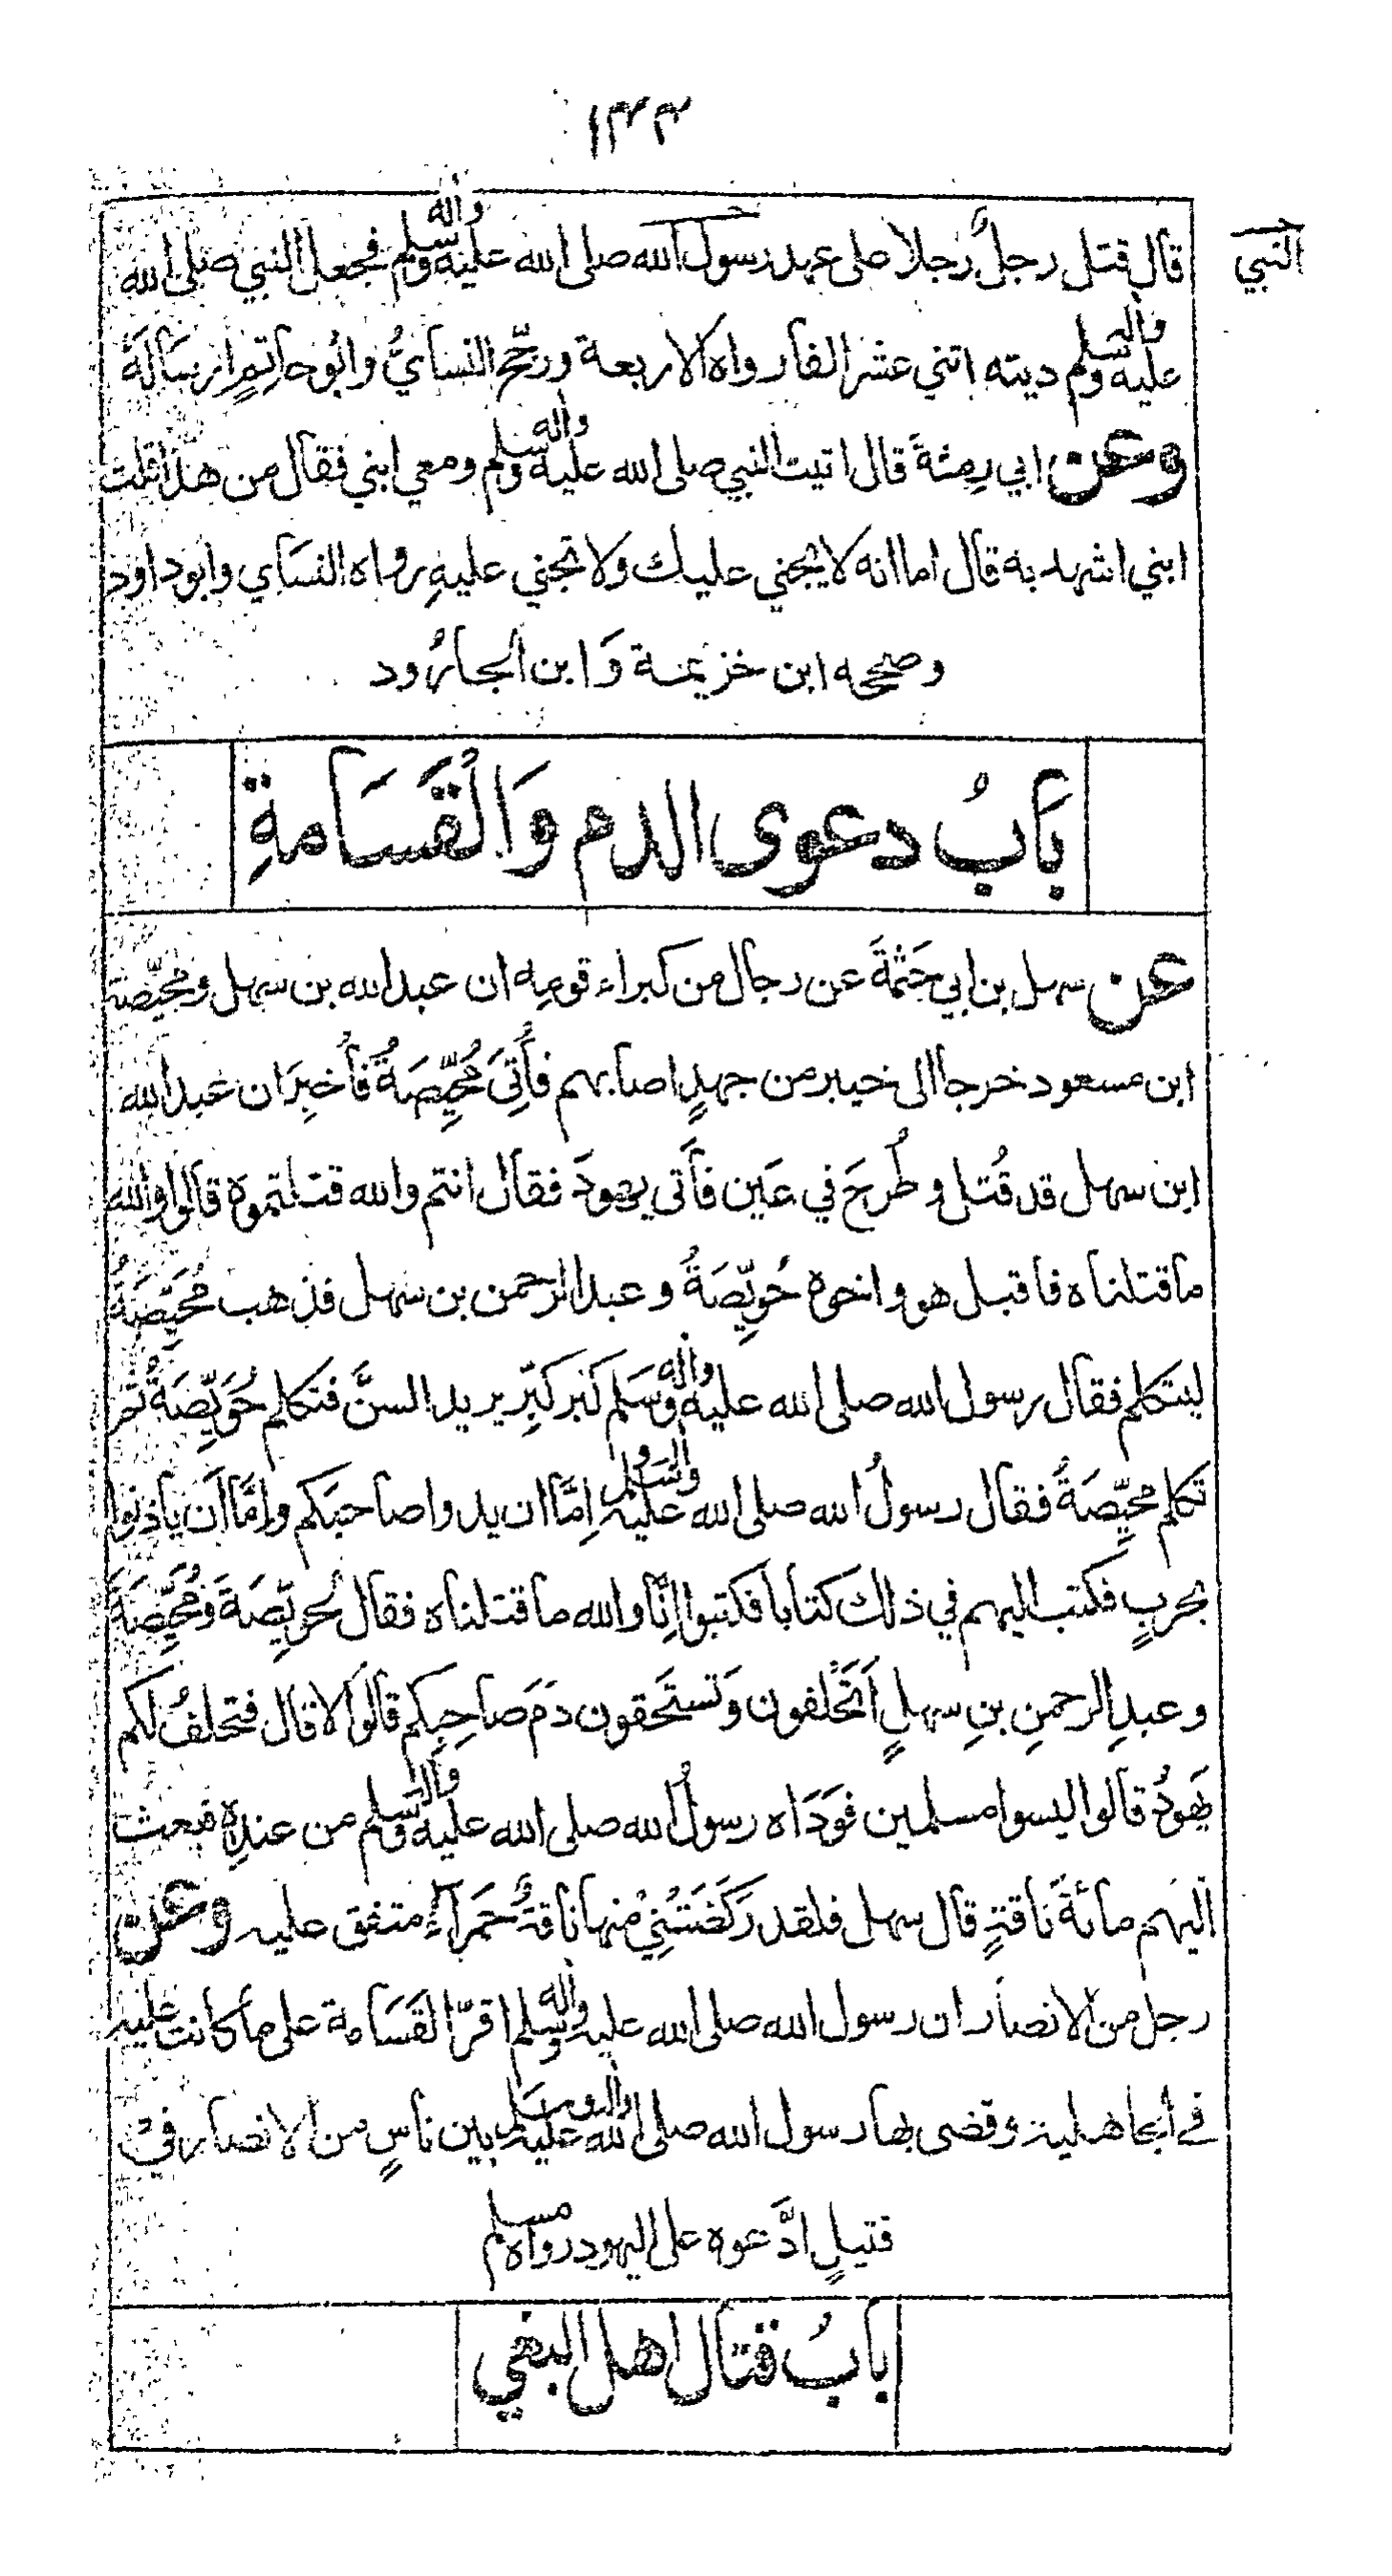 ١٣٣
قال قتل رجلٌ رجلا على عهد رسول الله صلى الله عليه واله وسلم فجعل النبي صلى الله
النبي
عليه واله وسلم ديته اثني عشر الفا رواه الاربعة ورجّح النسايُّ وابُو حاتِمٍ ارسَالَهُ
وعن ابي رِمثةَ قال اتيت النبي صلى الله عليه واله وسلم ومعي ابني فقال من هذا قلت
ابني اشهد به قال اما انه لا يجني عليك ولا تجني عليهِ رواه النسَاي وابو داود
وصححه ابن خزيمة وَابن الجارُود
بَابُ دعوى الدم وَالْقَسَامةِ
عن سهل بن ابي حَثْمَةَ عن رجال من كبراء قومِه ان عبد الله بن سهل ومُحَيِّصَة
ابن مسعود خرجا الى خيبر من جهدٍ اصابهم فأُتِيَ مُحَيِّصَةُ فأُخبِرَ ان عبد الله
ابن سهل قد قُتل وطُرِحَ في عَين فأَتى يهودَ فقال انتم والله قتلتموه قالوا والله
ما قتلناه فاقبل هو واخوه حُوَيِّصَةُ وعبد الرحمن بن سَهل فذهب مُحَيِّصَةُ
ليتكلم فقال رسول الله صلى الله عليه واله وسَلم كَبِّر كَبِّر يريد السنَّ فتكلم حُوَيِّصَةُ ثمّ
تكلم محيِّصَةُ فقال رسولُ الله صلى الله عليه واله وسلم اِمَّا ان يدوا صاحبَكم واِمَّا اَن ياذنوا
بحربٍ فكتب اليهم في ذلك كتابا فكتبوا اِنَّا والله ما قتلناه فقال لحويِّصَةَ ومُحَيِّصَةَ
وعبدِ الرحمنِ بنِ سهلٍ اَتَحْلفون وَتستَحقون دَمَ صَاحِبِكم قالوا لا قال فتحلفُ لكم
يَهودُ قالوا ليسوا مسلمين فوَدَاه رسولُ الله صلى الله عليه واله وسلم من عندِه فبعث
اليهم مائةَ ناقةٍ قال سهل فلقد رَكَضَتْنِي منها ناقةٌ حَمرآءُ متفق عليه وعن
رجل من الانصار ان رسول الله صلى الله عليه واله وسلم اقرّ القَسَامة على ما كانت عليه
في الجاهلية وقضى بها رسول الله صلى الله عليه واله وسلم بين ناسٍ من الانصار في
قتيلٍ ادَّعوه على اليهود رواه مسلم
بابُ قتال اهل البغي